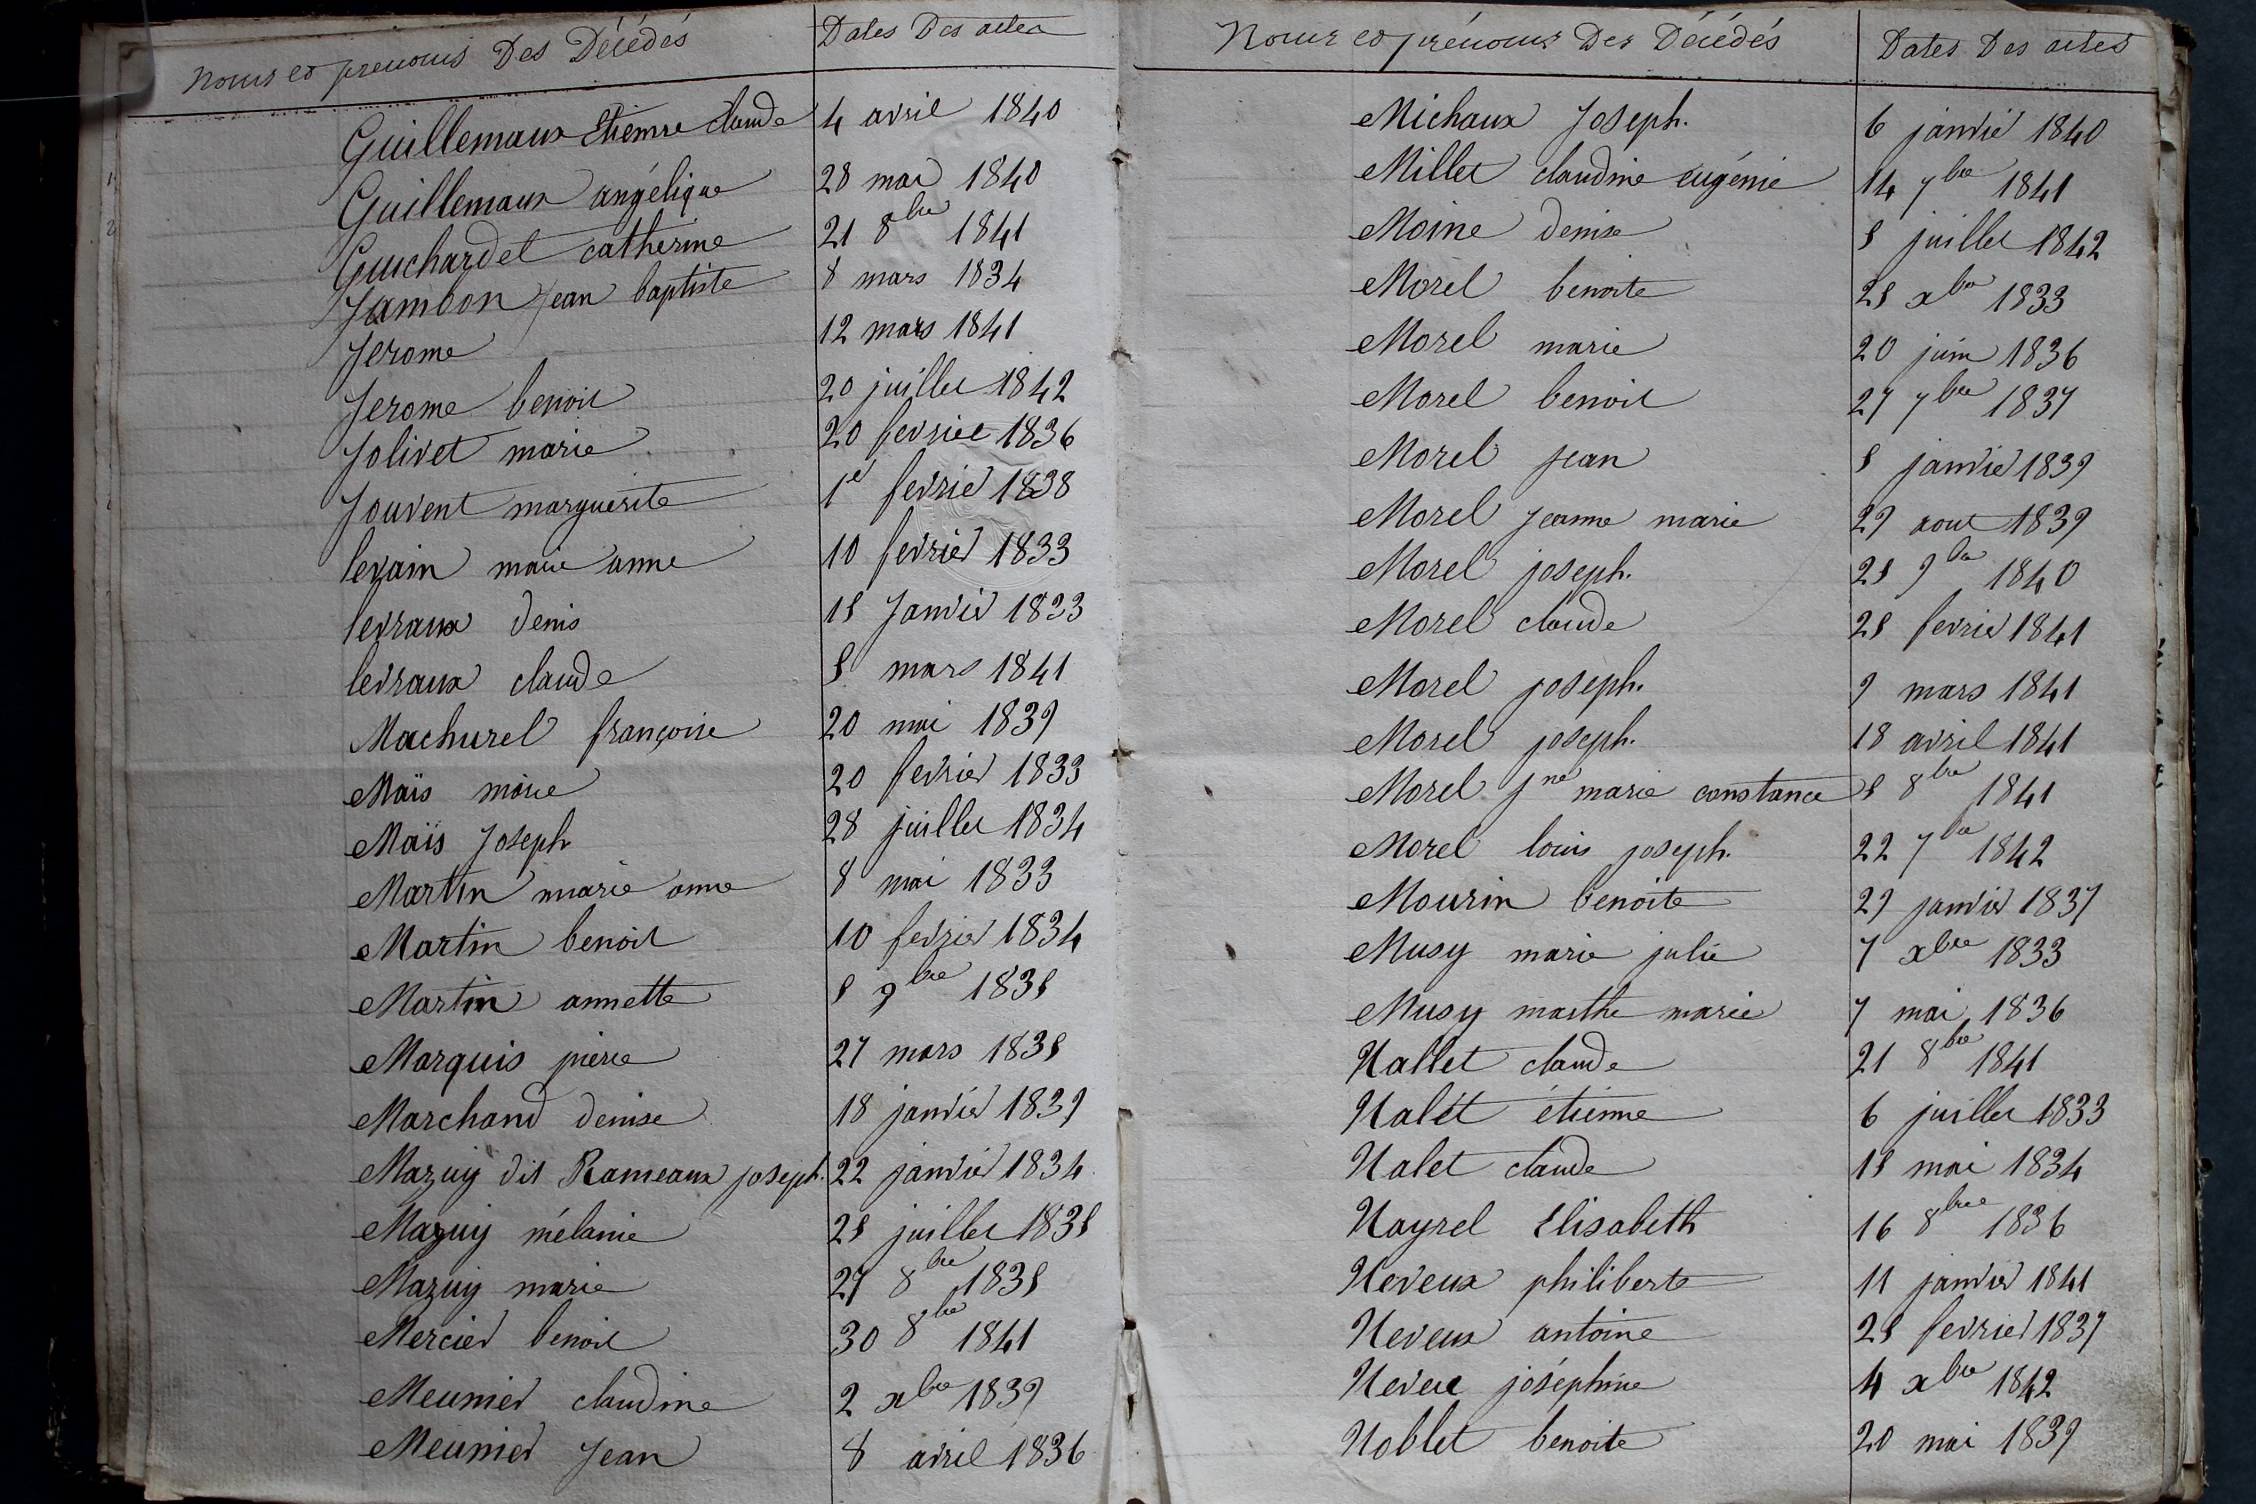 Noms et prenoms Des Décédés Dates Des actes
Guillemaux Etienne claude 4 avril 1840
Guillemaux angélique 28 mai 1840
Guichardet catherine 21 8bre 1841
Jambon jean baptiste 8 mars 1834
Jerome 12 mars 1841
Jerome benoit 20 juillet 1842
Jolivet marie 20 fevrier 1836
Jouvent marguerite 1er fevrier 1838
levain marie anne 10 fevrier 1833
levraux denis 15 Janvier 1833
levraux claude 5 mars 1841
Machurel françoise 20 mai 1839
Maïs marie 20 fevrier 1833
Maïs Joseph 28 juillet 1834
Martin marie anne 8 mai 1833
Martin benoit 10 fevrier 1834
Martin annette 5 9bre 1835
Marquis pierre 27 mars 1835
Marchand denise 18 janvier 1839
Mazuy dit Rameaux joseph. 22 janvier 1834
Mazuy mélanie 25 juillet 1835
Mazuy marie 27 8bre 1835
Mercier benoit 30 8bre 1841
Meunier claudine 2 xbre 1839
Meunier Jean 8 avril 1836
Noms et prénoms Des Décédés Dates Des actes
Michaux Joseph. 6 janvier 1840
Millet claudine eugénie 14 7bre 1841
Moine denise 5 juillet 1842
Morel benoite 25 xbre 1833
Morel marie 20 juin 1836
Morel benoit 27 7bre 1837
Morel jean 5 janvier 1839
Morel jeanne marie 29 aout 1839
Morel joseph. 25 9bre 1840
Morel claude 25 fevrier 1841
Morel joseph. 9 mars 1841
Morel joseph. 18 avril 1841
Morel jne marie constance 5 8bre 1841
Morel louis joseph. 22 7bre 1842
Mourin benoite 29 janvier 1837
Musy marie julie 7 xbre 1833
Musy marthe marie 7 mai 1836
Nallet claude 21 8bre 1841
Nalet étienne 6 juillet 1833
Nalet claude 15 mai 1834
Nayrel Elisabeth 16 8bre 1836
Neveux philiberte 11 janvier 1841
Neveux antoine 25 fevrier 1837
Neveu joséphine 4 xbre 1842
Noblet benoite 20 mai 1839